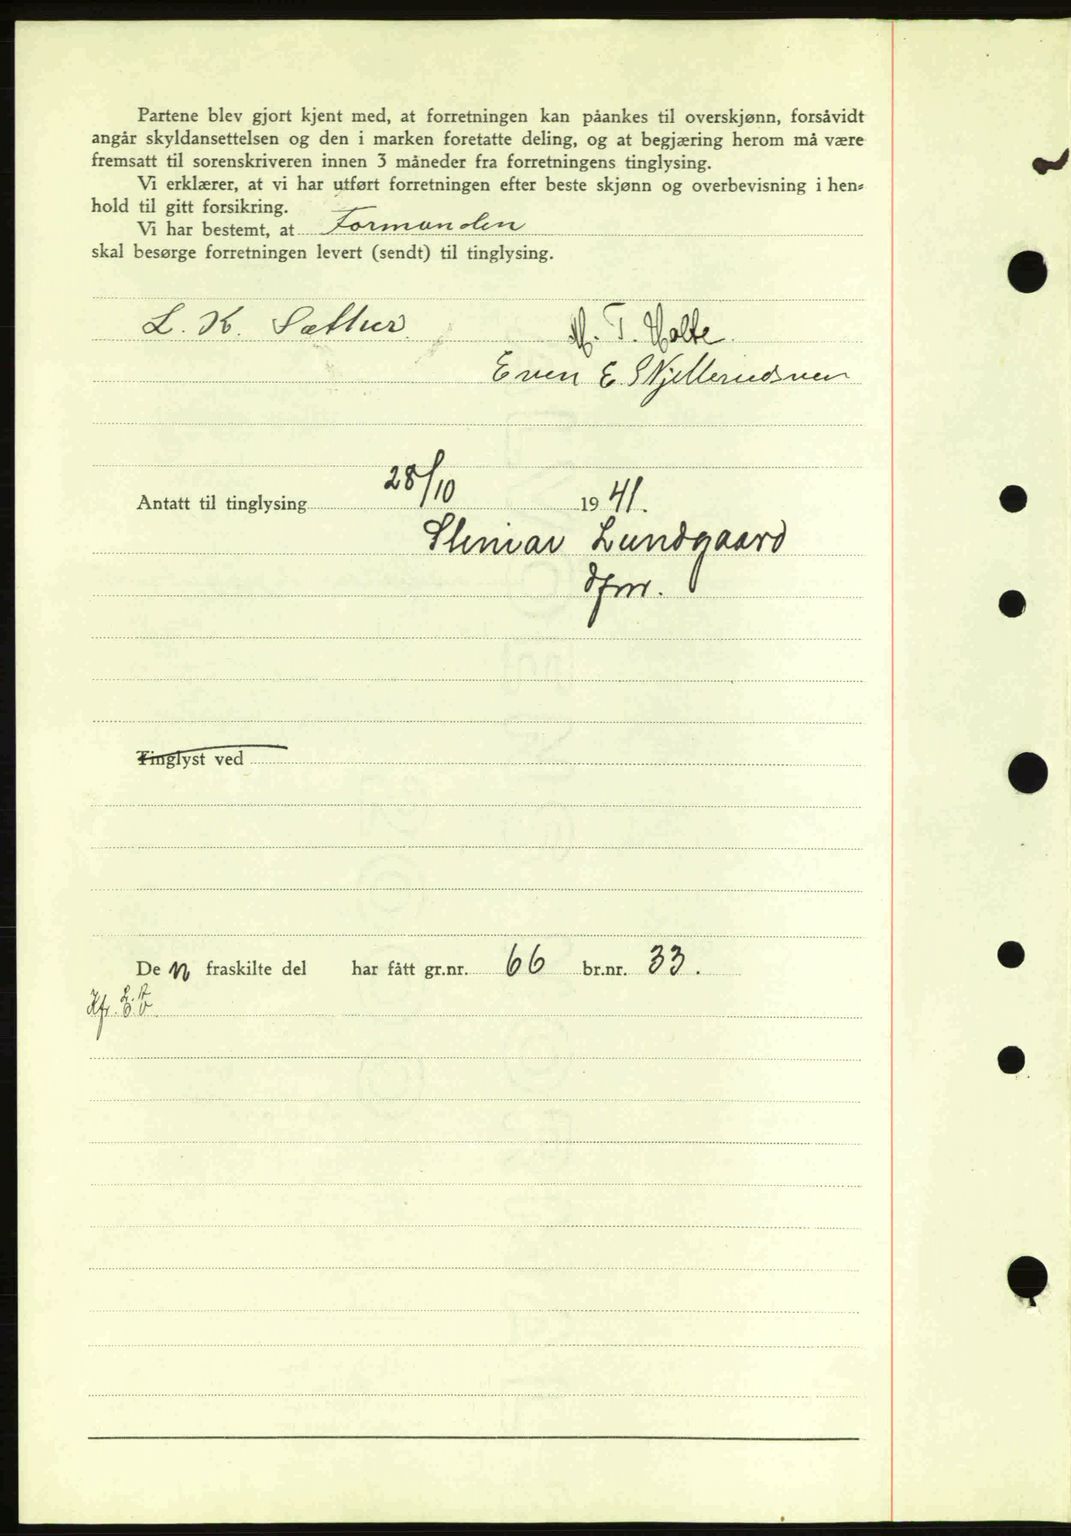 Partene blev gjort kjent med, at forretningen kan påankes til overskjønn, forsåvidt
angår skyldansettelsen og den i marken foretatte deling, og at begjæring herom må være
fremsatt til sorenskriveren innen 3 måneder fra forretningens tinglysing.
Vi erklærer, at vi har utført forretningen efter beste skjønn og overbevisning i hen-
hold til gitt forsikring.
Vi har bestemt, at Formanden
skal besørge forretningen levert (sendt) til tinglysing.
L. K. Sæther
H. T. Holte
Even E. Skjellerudsveen
Antatt til tinglysing 28/10 1941.
Lundgaard
dfm.
Tinglyst ved
De n fraskilte del har fått gr.nr. 66 br.nr. 33.
Kfr.